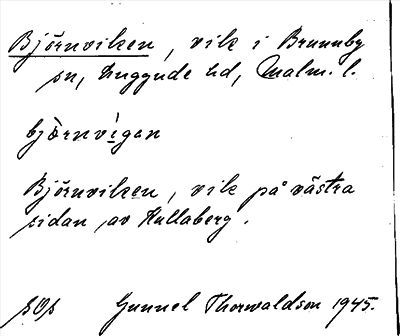 Björnviken, vik i Brunnby
sn, Luggude hd, Malm. l.
björnvìgan
Björnviken, vik på västra
sidan av Kullaberg.
sOs Gunnel Thorwaldson 1945.